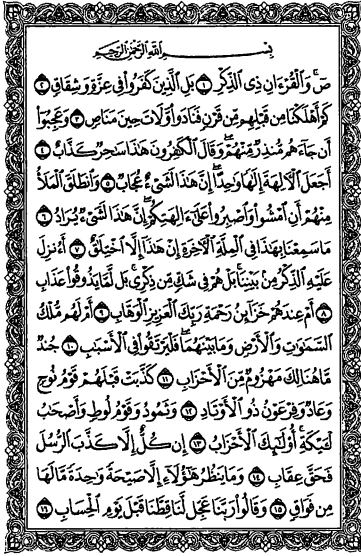 بِسْمِ اللَّهِ الرَّحْمَٰنِ الرَّحِيمِ
صٓ ۚ وَالْقُرْءَانِ ذِي الذِّكْرِ ﴿١﴾ بَلِ الَّذِينَ كَفَرُوا فِي عِزَّةٍ وَشِقَاقٍ ﴿٢﴾
كَمْ أَهْلَكْنَا مِن قَبْلِهِم مِّن قَرْنٍ فَنَادَوا وَّلَاتَ حِينَ مَنَاصٍ ﴿٣﴾ وَعَجِبُوا
أَن جَاءَهُم مُّنذِرٌ مِّنْهُمْ ۖ وَقَالَ الْكَٰفِرُونَ هَٰذَا سَٰحِرٌ كَذَّابٌ ﴿٤﴾
أَجَعَلَ الْآلِهَةَ إِلَٰهًا وَٰحِدًا ۖ إِنَّ هَٰذَا لَشَيْءٌ عُجَابٌ ﴿٥﴾ وَانطَلَقَ الْمَلَأُ
مِنْهُمْ أَنِ امْشُوا وَاصْبِرُوا عَلَىٰ ءَالِهَتِكُمْ ۖ إِنَّ هَٰذَا لَشَيْءٌ يُرَادُ ﴿٦﴾
مَا سَمِعْنَا بِهَٰذَا فِي الْمِلَّةِ الْآخِرَةِ إِنْ هَٰذَا إِلَّا اخْتِلَٰقٌ ﴿٧﴾ أَءُنزِلَ
عَلَيْهِ الذِّكْرُ مِن بَيْنِنَا ۚ بَلْ هُمْ فِي شَكٍّ مِّن ذِكْرِي ۖ بَل لَّمَّا يَذُوقُوا عَذَابِ
﴿٨﴾ أَمْ عِندَهُمْ خَزَائِنُ رَحْمَةِ رَبِّكَ الْعَزِيزِ الْوَهَّابِ ﴿٩﴾ أَمْ لَهُم مُّلْكُ
السَّمَٰوَٰتِ وَالْأَرْضِ وَمَا بَيْنَهُمَا ۖ فَلْيَرْتَقُوا فِي الْأَسْبَٰبِ ﴿١٠﴾ جُندٌ
مَّا هُنَالِكَ مَهْزُومٌ مِّنَ الْأَحْزَابِ ﴿١١﴾ كَذَّبَتْ قَبْلَهُمْ قَوْمُ نُوحٍ
وَعَادٌ وَفِرْعَوْنُ ذُو الْأَوْتَادِ ﴿١٢﴾ وَثَمُودُ وَقَوْمُ لُوطٍ وَأَصْحَٰبُ
لْـَٔيْكَةِ ۚ أُولَٰئِكَ الْأَحْزَابُ ﴿١٣﴾ إِن كُلٌّ إِلَّا كَذَّبَ الرُّسُلَ
فَحَقَّ عِقَابِ ﴿١٤﴾ وَمَا يَنظُرُ هَٰؤُلَاءِ إِلَّا صَيْحَةً وَٰحِدَةً مَّا لَهَا
مِن فَوَاقٍ ﴿١٥﴾ وَقَالُوا رَبَّنَا عَجِّل لَّنَا قِطَّنَا قَبْلَ يَوْمِ الْحِسَابِ ﴿١٦﴾